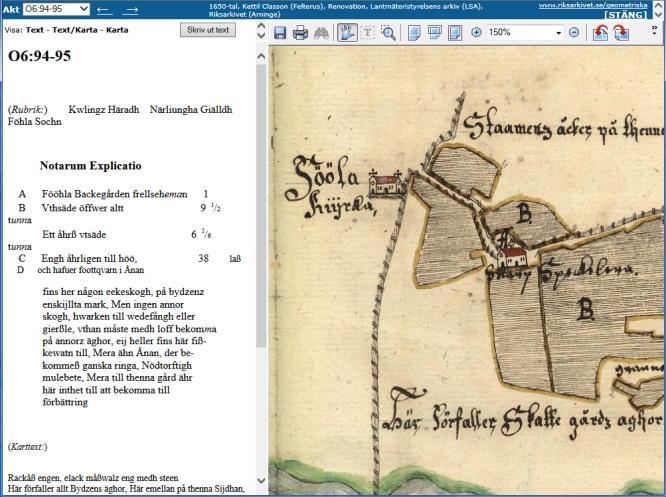 Akt O6:94-95
1650-tal, Kettil Classon (Felterus), Renovation, Lantmäteristyrelsens arkiv (LSA),
Riksarkivet (Arninge)
www.riksarkivet.se/geometriska
[STÄNG]
Visa: Text - Text/Karta - Karta
Skriv ut text
150%
O6:94-95
(Rubrik:) Kwlingz Häradh Närliungha Giälldh
Föhla Sochn
Notarum Explicatio
A Fööhla Backegården frellseheman 1
B Vthsäde öffwer altt 9 1/2
tunna
Ett åhrß vtsäde 6 2/6
tunna
C Engh åhrligen till höö, 38 laß
D och hafuer foottqvarn i Ånan
fins her någon eekeskogh, på bydzenz
enskijllta mark, Men ingen annor
skogh, hwarken till wedefångh eller
gierßle, vthan måste medh loff bekomma
på annorz äghor, eij heller fins här fiß-
kewatn till, Mera ähn Ånan, der be-
kommeß ganska ringa, Nödtorftigh
mulebete, Mera till thenna gård ähr
här inthet till att bekomma till
förbättring
(Karttext:)
Rackåß engen, elack måßwalz eng medh steen
Här förfaller allt Bydzens äghor, Här emellan på thenna Sijdhan,
Staamens åcker på thenne
Fööla
Kijrka,
B.
A
B.
Här Förfaller Skatte gårdz äghor